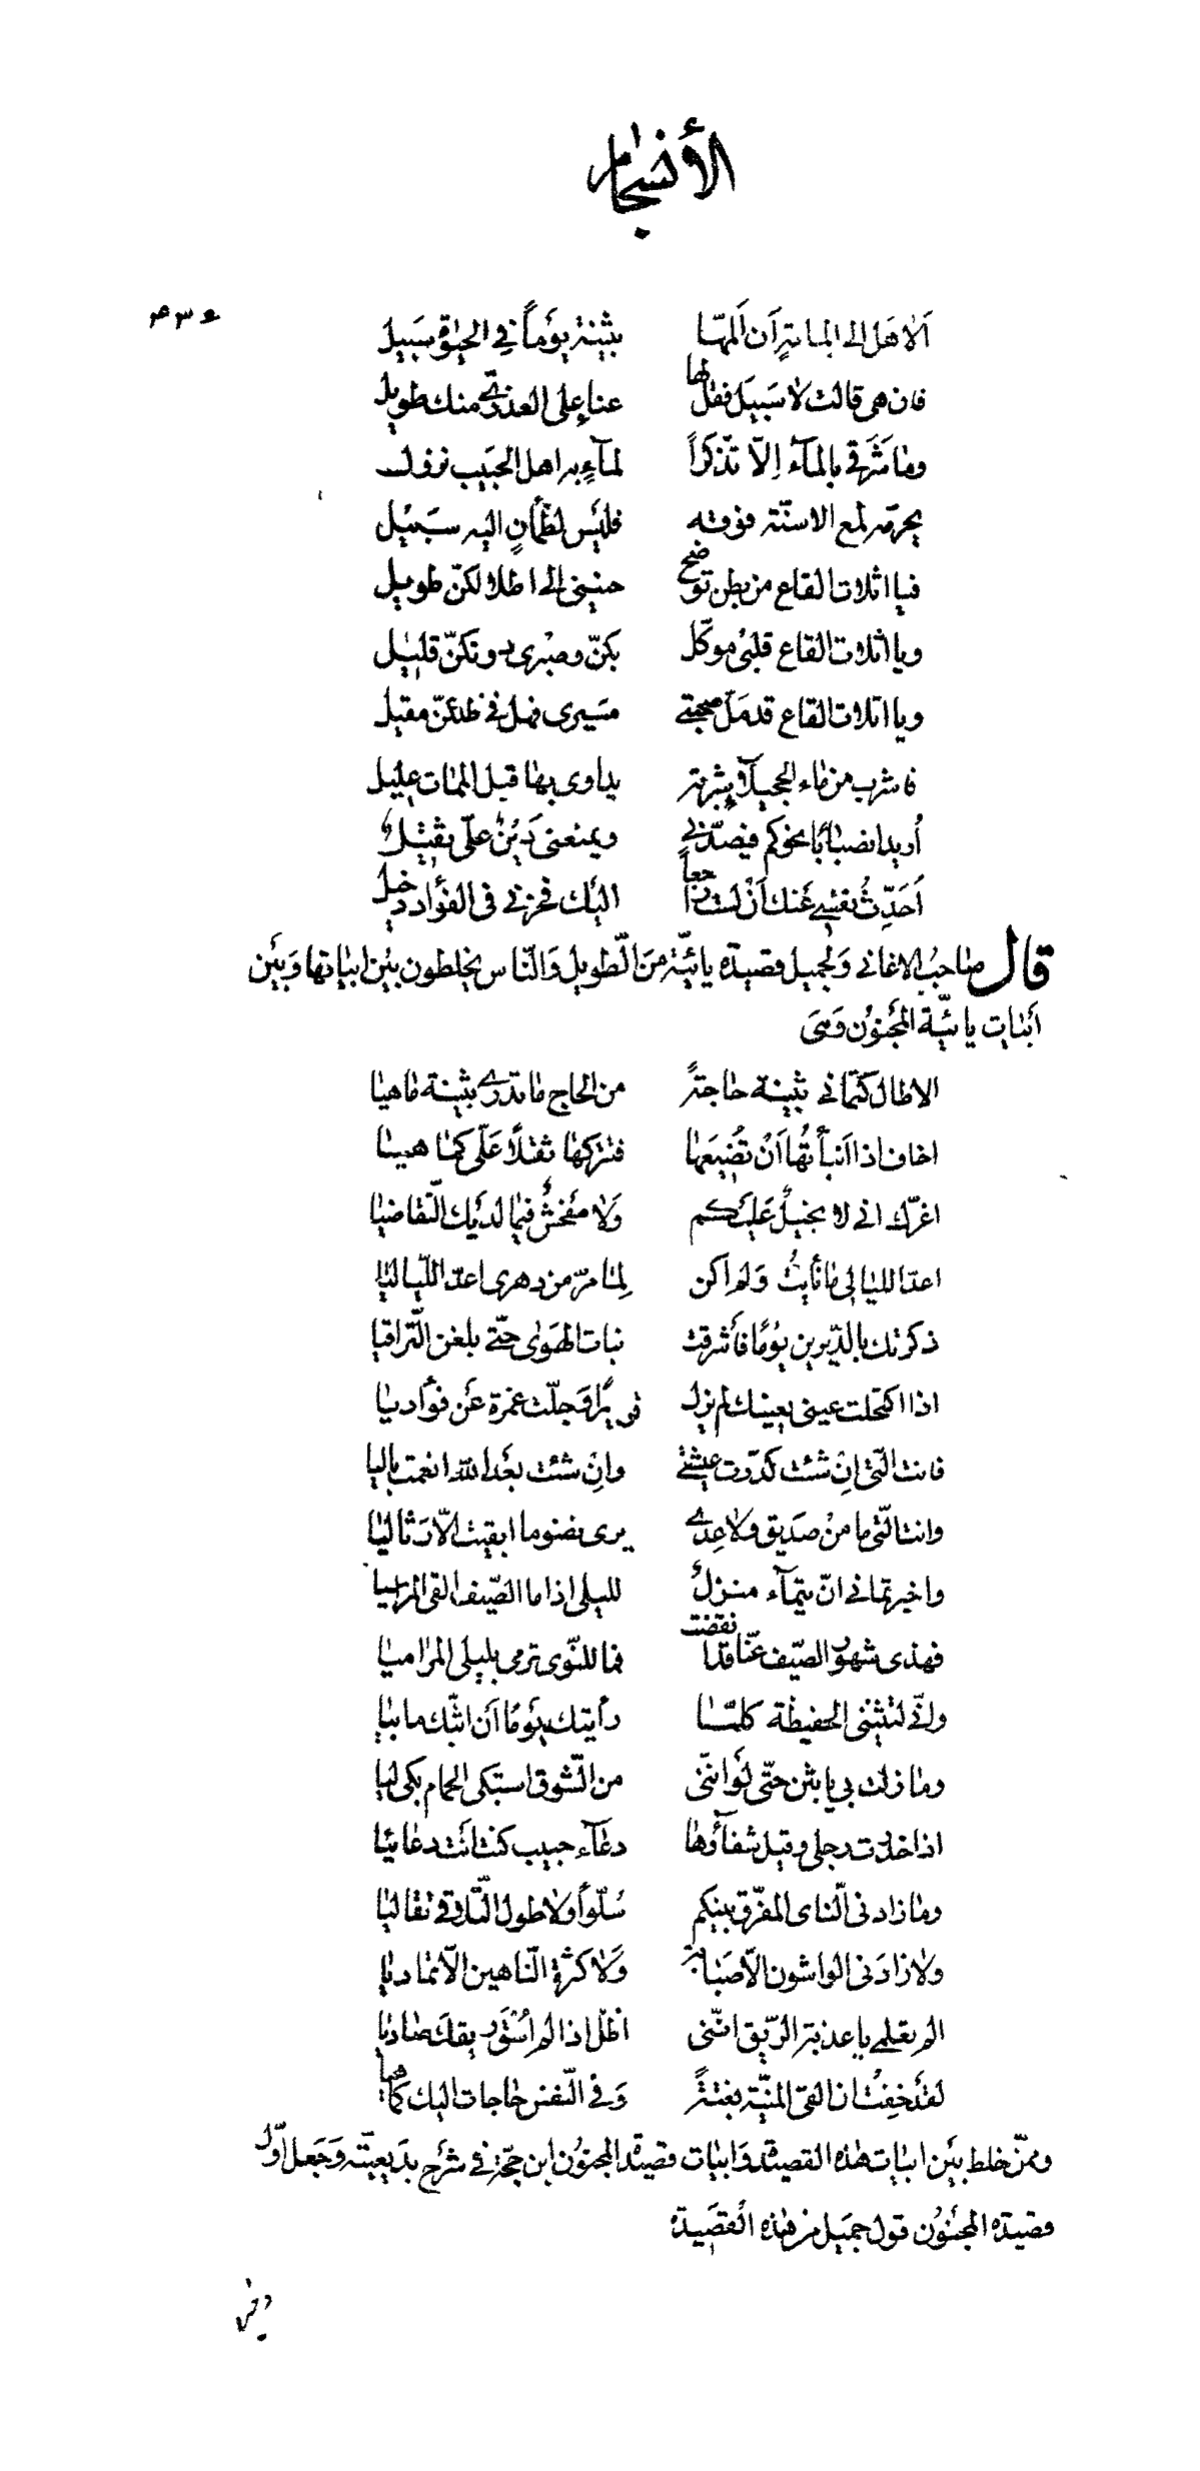 الأنسجام
۴۳۶
أَلاَ هَل الى المامة أَن أَلمّها بثينة يوماً في الحيوة سبيل
فان هى قالت لا سَبيَل فقل لها عناء على العذرىّ منك طويل
وما شَرَقى بالمآء اِلّا تذكّراً لمآءٍ به اهل الحبَيب نزول
يحرمّه لمع الاسنّة فوقه فليَس لظمأنٍ اليه سبَيل
فيا اثلات القاع من بطن توضح حنينى الى اظلالكنّ طويل
ويا اثلات القاع قلبى موكّل بكنّ وصبرى دونكنّ قليل
ويا اثلات القاع قد ملّ صحبتى مسَيرى فهل فى ظلكنّ مقيل
فاشرب من ماء الحجيلآء شربة يداوى بها قبل الممات عليل
أريد انصبابًا نحوكم فيصدّنى ويمنعنى دَيْنٌ علىّ ثقيل
اُحَدِّثُ نفسى عَنك أَنْ لست راجعاً اليَك فحزنى فى الفؤاد دخيل
قال صاحبُ الاغانى وَلجميل قصيدة يائيّة منَ الّطويل وَالنّاس يخلطون بيَن ابياتها وَبيَن
أبيَات يائيّة المجنوُن وَهىَ
الا طال كتمانى بثينة حاجةً من الحاج ما تدرى بثينة ما هيا
اخاف اذا اَنبأتُها اَنْ تُضيَعها فتتركها ثقلاً عَلّى كما هيا
اغرّك انى لا بخيلٌ عَليكم وَلا مفحشٌ فيما لديَك التّقاضيا
اعدّ الليالى ما نأيتُ وَلم اكن لِما مرّ من دهرى اعدّ اللّياليا
ذكرتك بالديّرين يوُمًا فأشرقت نبات الهَوٰى حتّى بلغن التّراقيا
اذا اكتحلت عينى بعينك لم يزل فى يراً وَجلّت غمرة عَن فؤاديا
فانت الّتى اِنْ شئت كدّرت عيشتى وانْ شئت بعَد الله انعمت باليا
وانت الّتى ما منْ صَديق ولا عِدى يرى نضو ما ابقيت الاّ رَثا ليا
واخبرتمانى انّ تيمآء منزلٌ لليلى اذا ما الصّيف القى المراسيا
فهذى شهور الصّيف عنّا قد انقضت فما للنّوى ترمى بليلى المراميا
وانّى لتثنينى الحفيظة كلمّا رأيتك يوَمًا اَن ابثّك ما بيا
وما زلت بى يا بثن حتّى لَو انّنى من الشّوق استبكى الحمام بكى ليا
اذا خدرت رجلى وقيل شفآؤها دعآء حبيب كنت اَنت دعائيا
وما زادنى النّاى المفرّق بينكم سُلوّاً ولا طول التّلاقى تقاليا
ولا زادَنى الواشون الّا صَبابة وَلا كثرة النّاهين الّا تماديا
الم تعلمى يا عذبة الرّيق انّنى اظلّ اذا لم اُسْقَ ريقك صاديا
لقَد خِفتُ ان القى المنيّة بغتةً وَفى النّفس حاجات اليك كما هيا
وممّن خلط بيَن ابيات هذه القصيدة وَابيات قصيدة المجنوُن ابن حجّة فى شرَح بدَيعيّته وَجَعل اوّل
قصيدة المجنَوُن قول جميَل من هذه القصَيدة